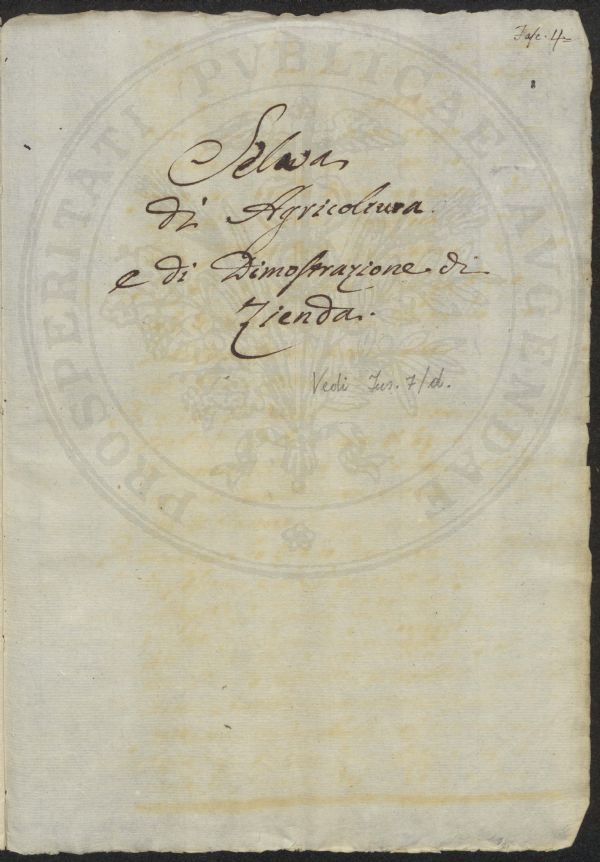 Fasc. 4=
Selva
di Agricoltura
e di Dimostrazione di
Zienda.
Vedi
PROSPERITATI PVBLICAE AVGENDAE